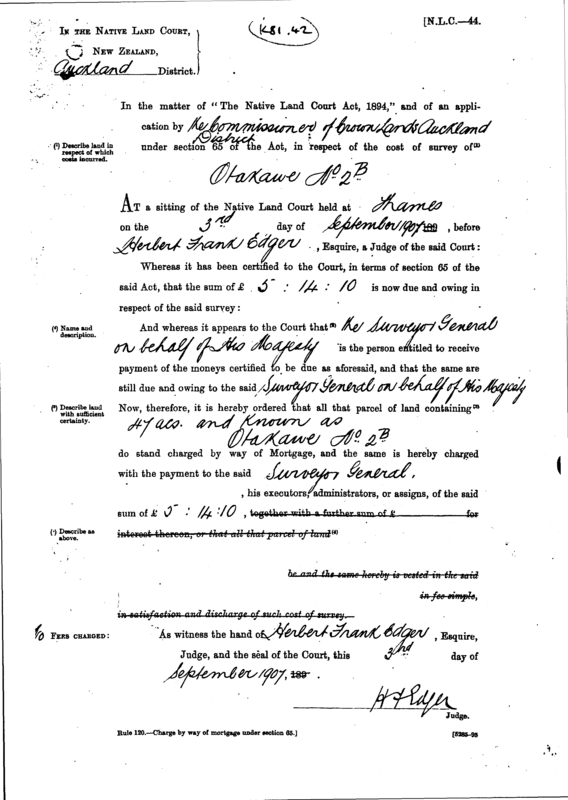 K81.42
[N.L.C.—44.
IN THE NATIVE LAND COURT,
NEW ZEALAND,
Auckland District.
In the matter of "The Native Land Court Act, 1894," and of an appli-
cation by the Commissioner of Crown Lands Auckland
District
(¹) Describe land in respect of which costs incurred.
under section 65 of the Act, in respect of the cost of survey of(¹)
Otakawe No. 2B
AT a sitting of the Native Land Court held at Thames
on the 3rd day of September 1907 189 , before
Herbert Frank Edger , Esquire, a Judge of the said Court:
Whereas it has been certified to the Court, in terms of section 65 of the
said Act, that the sum of £ 5 : 14 : 10 is now due and owing in
respect of the said survey:
(²) Name and description.
And whereas it appears to the Court that(²) the Surveyor General
on behalf of His Majesty is the person entitled to receive
payment of the moneys certified to be due as aforesaid, and that the same are
still due and owing to the said Surveyor General on behalf of His Majesty
(³) Describe land with sufficient certainty.
Now, therefore, it is hereby ordered that all that parcel of land containing(³)
47 acs. and Known as
Otakawe No. 2B
do stand charged by way of Mortgage, and the same is hereby charged
with the payment to the said Surveyor General.
, his executors, administrators, or assigns, of the said
sum of £ 5 : 14 : 10 , together with a further sum of £ for
(⁴) Describe as above.
interest thereon, or that all that parcel of land(⁴)
be and the same hereby is vested in the said
in fee simple,
in satisfaction and discharge of such cost of survey.
FEES CHARGED:
As witness the hand of Herbert Frank Edger , Esquire,
Judge, and the seal of the Court, this 3rd day of
September 1907, 189 .
H F Edger
Judge.
Rule 120.—Charge by way of mortgage under section 65.]
[5285-95